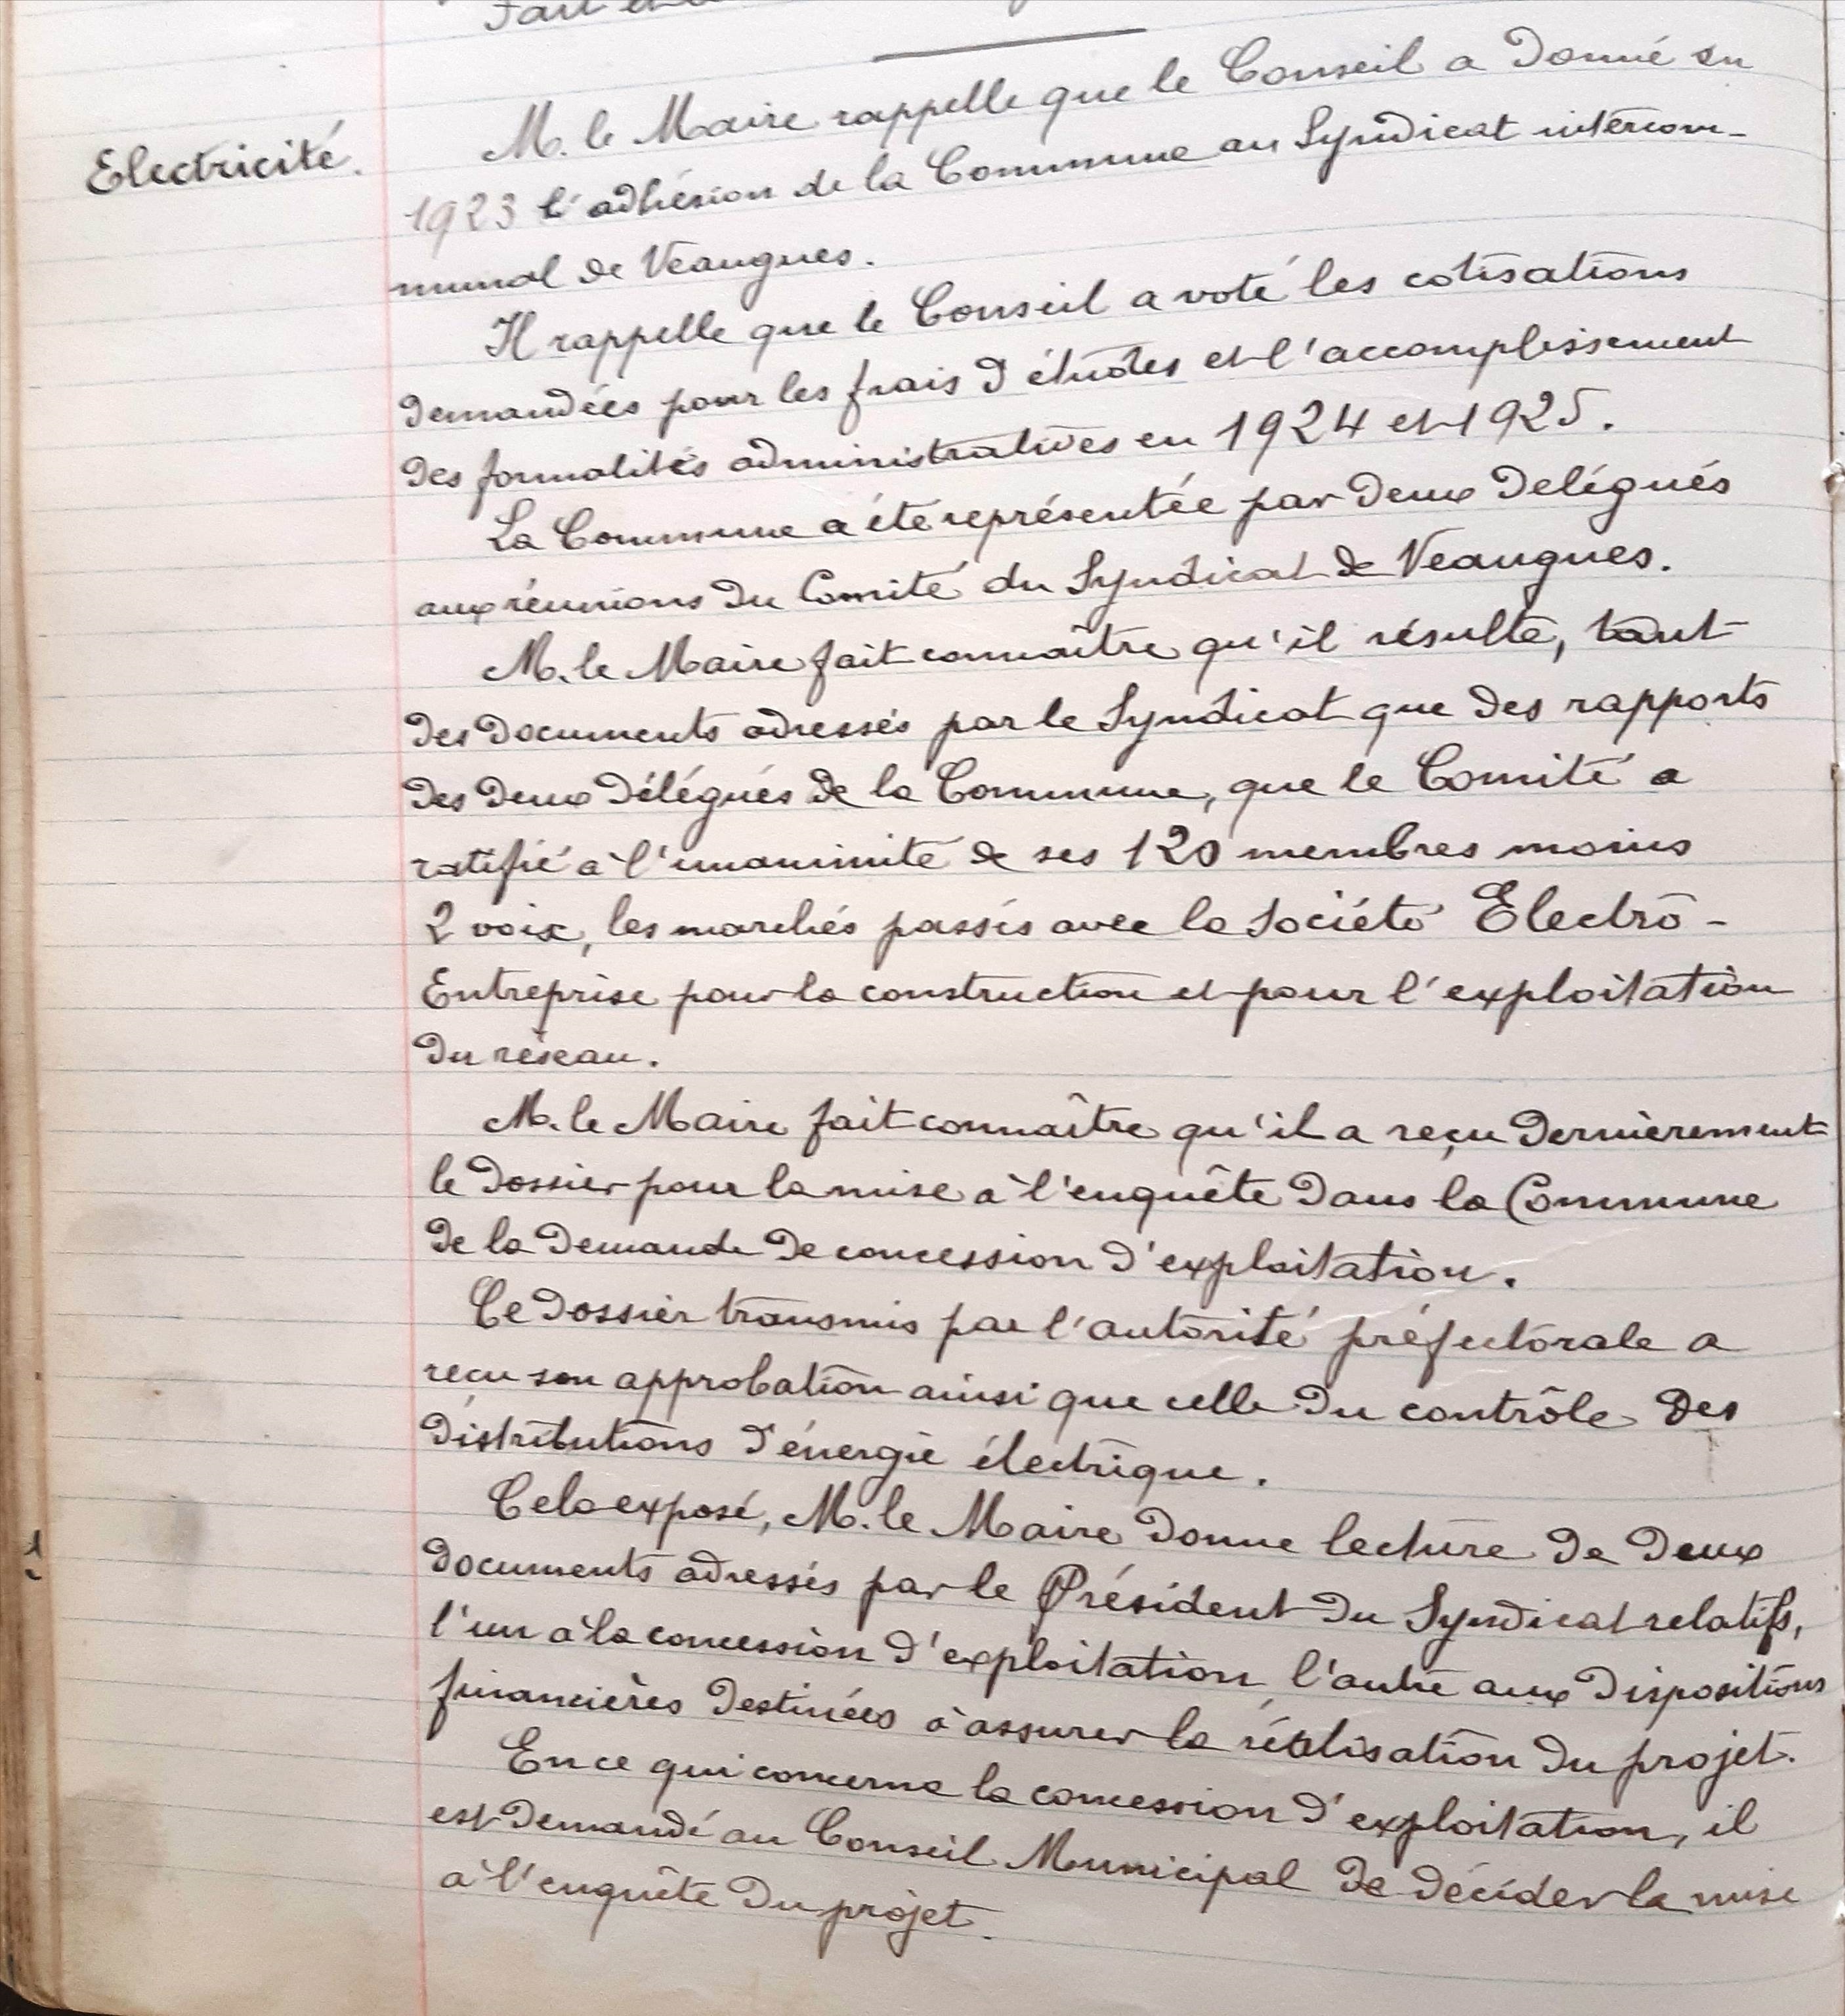 Fait et
Electricité.
M. le Maire rappelle que le Conseil a donné en
1923 l'adhésion de la Commune au Syndicat intercom-
munal de Veaugues.
Il rappelle que le Conseil a voté les cotisations
demandées pour les frais d'études et l'accomplissement
des formalités administratives en 1924 et 1925.
La Commune a été représentée par deux délégués
aux réunions du Comité du Syndicat de Veaugues.
M. le Maire fait connaître qu'il résulte, tant
des documents adressés par le Syndicat que des rapports
des deux délégués de la Commune, que le Comité a
ratifié à l'unanimité de ses 120 membres moins
2 voix, les marchés passés avec la Société Electro-
Entreprise pour la construction et pour l'exploitation
du réseau.
M. le Maire fait connaître qu'il a reçu dernièrement
le dossier pour la mise à l'enquête dans la Commune
de la demande de concession d'exploitation.
Ce dossier transmis par l'autorité préfectorale a
reçu son approbation ainsi que celle du contrôle des
distributions d'énergie électrique.
Cela exposé, M. le Maire donne lecture de deux
documents adressés par le Président du Syndicat relatifs,
l'un à la concession d'exploitation l'autre aux dispositions
financières destinées à assurer la réalisation du projet.
En ce qui concerne la concession d'exploitation, il
est demandé au Conseil Municipal de décider la mise
à l'enquête du projet.